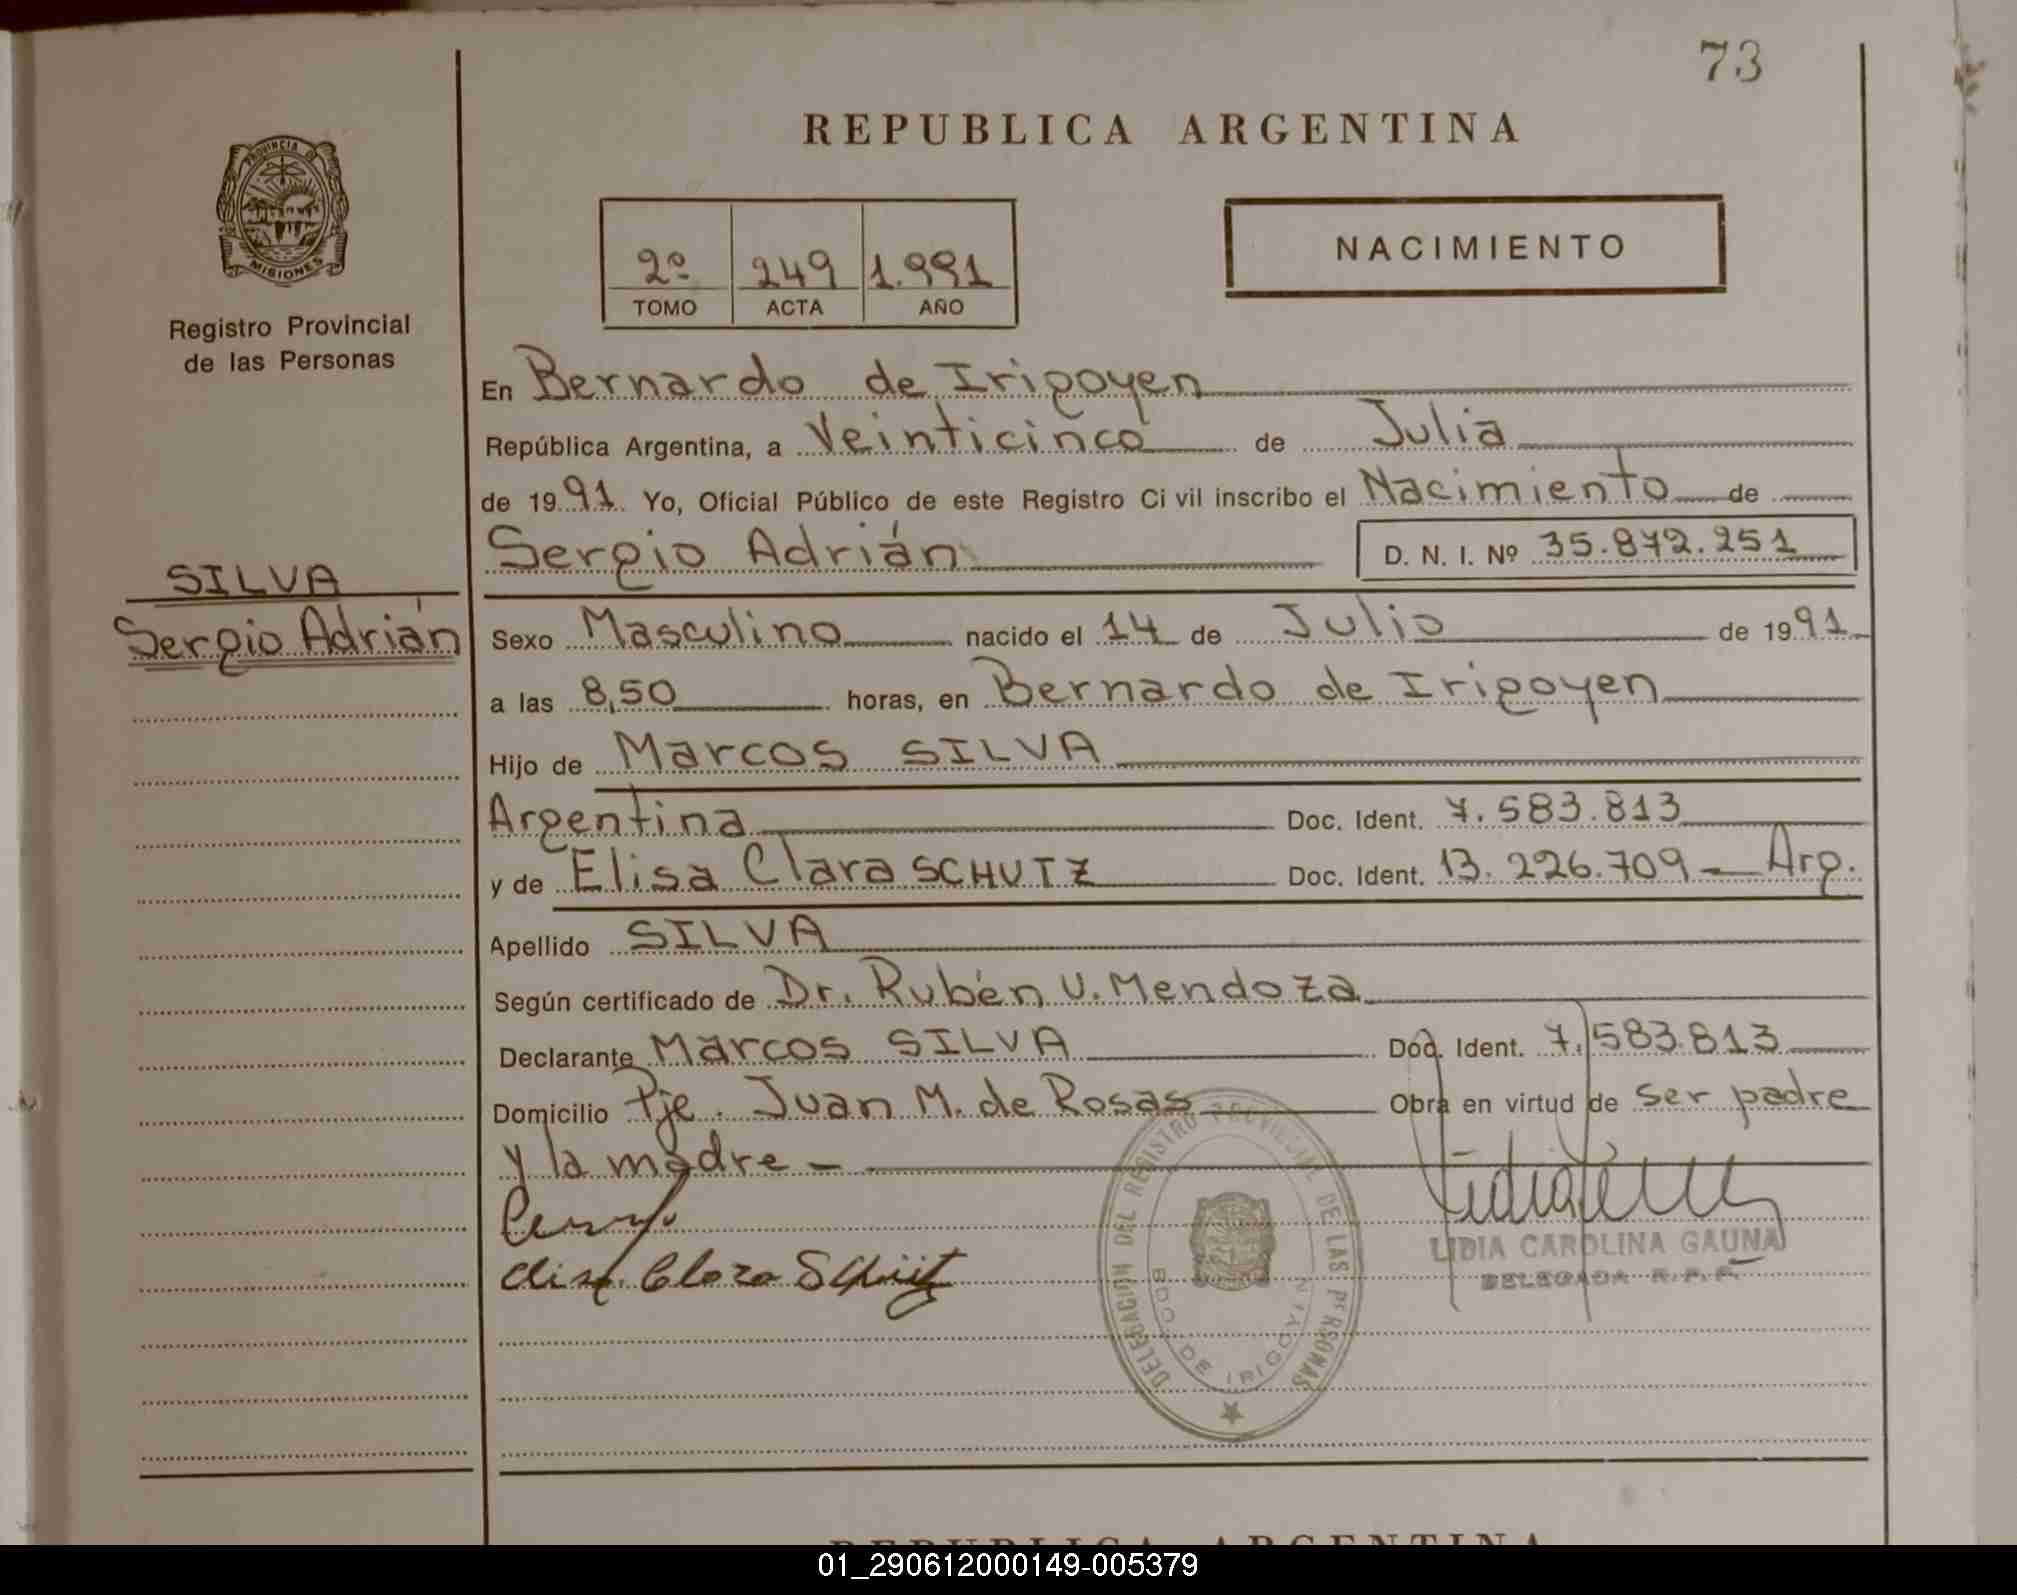 73
REPUBLICA ARGENTINA
PROVINCIA DE
MISIONES
Registro Provincial
de las Personas
2º 249 1.991
TOMO ACTA AÑO
NACIMIENTO
En Bernardo de Irigoyen
República Argentina, a Veinticinco de Julio
de 19 91 Yo, Oficial Público de este Registro Ci vil inscribo el Nacimiento de
Sergio Adrián D. N. I. Nº 35.872.251
SILVA
Sergio Adrián
Sexo Masculino nacido el 14 de Julio de 19 91
a las 8,50 horas, en Bernardo de Irigoyen
Hijo de Marcos SILVA
Argentina Doc. Ident. 7.583.813
y de Elisa Clara SCHUTZ Doc. Ident. 13.226.709 - Arg.
Apellido SILVA
Según certificado de Dr. Rubén U. Mendoza
Declarante Marcos SILVA Doc. Ident. 7.583.813
Domicilio Pje. Juan M. de Rosas Obra en virtud de ser padre
y la madre -
Elisa Clara Schütz
DELEGACION DEL REGISTRO PROVINCIAL DE LAS PERSONAS
BDO. DE IRIGOYEN
LIDIA CAROLINA GAUNA
DELEGADA R. P. P.
REPUBLICA ARGENTINA
01_290612000149-005379